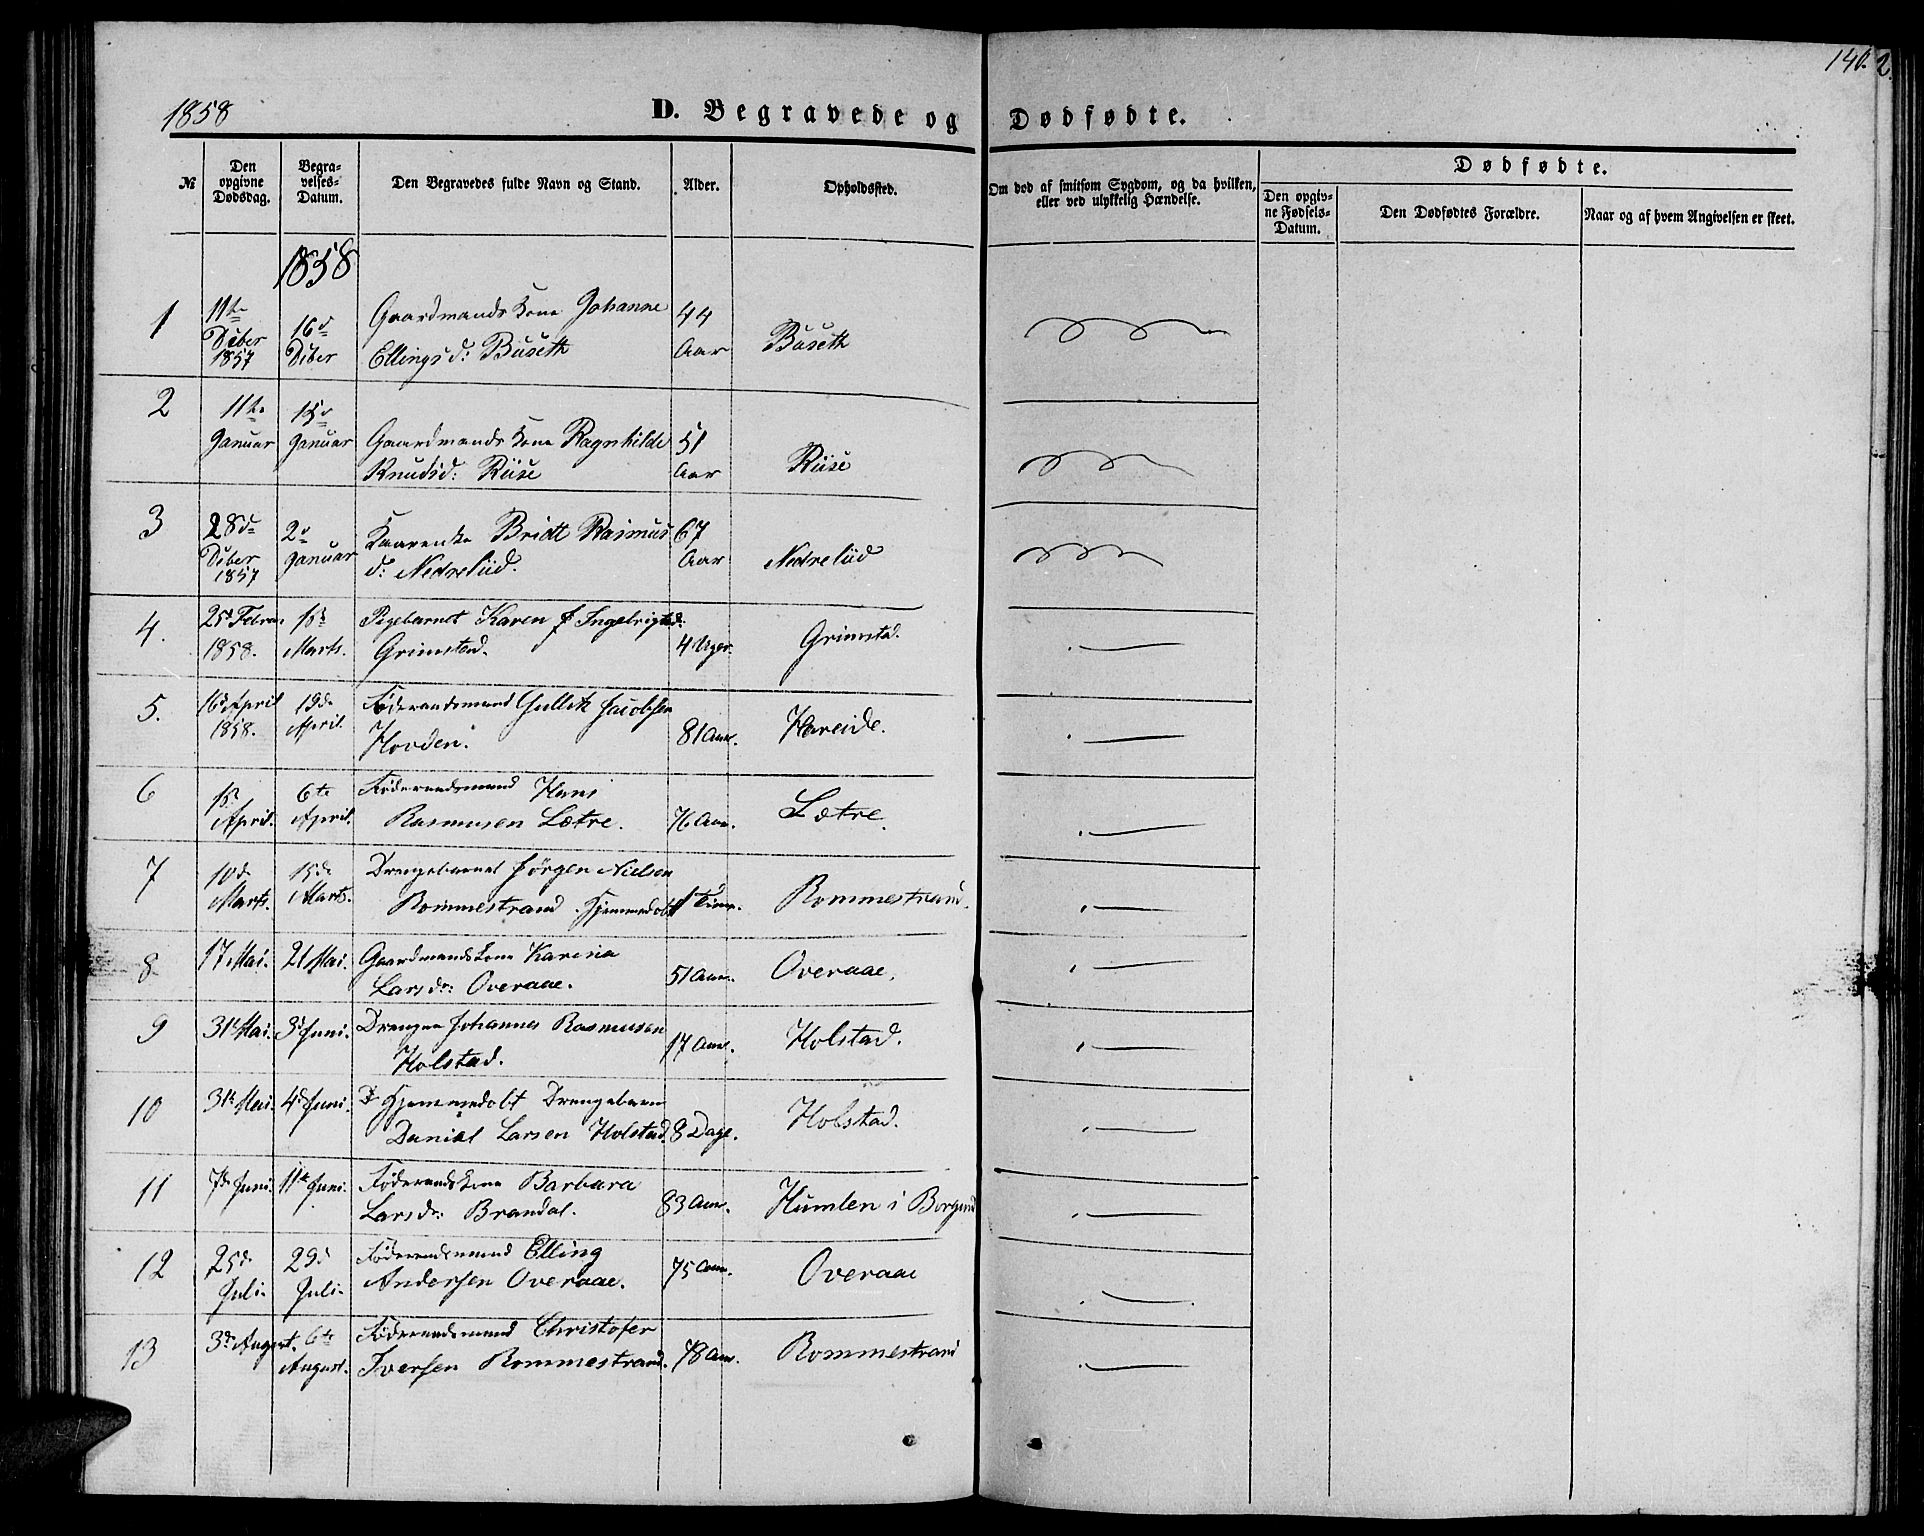 140. 2.
1858
D. Begravede og Dødfødte.
№
Den opgivne Dødsdag.
Begra-
velses-
Datum.
Den Begravedes fulde Navn og Stand.
Alder.
Opholdssted.
Om død af smitsom Sygdom, og da hvilken,
eller ved ulykkelig Hændelse.
Dødfødte.
Den opgiv-
ne Fødsels-
Datum.
Den Dødfødtes Forældre.
Naar og af hvem Angivelsen er skeet.
1858
1 11te Dcber 1857 16d Dcber Gaardmands Kone Johanne Ellingsd: Buseth 44 Aar Buseth
2 11te Januar 15d Januar Gaardmands Kone Ragnhilde Knudsd: Riise 51 Aar Riise
3 28de Dcber 1857 2d Januar Bridt Rasmus d: Nedreliid. 67 Aar Nedreliid
4. 25d Februar 1858. 1ste Marts. Pigebarnet Karen J Ingebrigtsd: Grimstad. 4 Uger. Grimstad.
5. 16d April 1858. 19de April. Føderaadsmand Gullik Jacobsen Hovden. 81 Aar. Hareide.
6 1ste April. 6te April. Føderaadsmand Hans Rasmusen Lætre. 76 Aar. Lætre.
7 10de Marts. 15de Marts. Drengebarnet Jørgen Nielsen Rommestrand. Hjemmedøbt 1 Time. Rommestrand.
8 17 Mai. 21 Mai. Gaardmandskone Karina Larsdr: Overaae. 51 Aar. Overaae.
9 31te Mai. 3d Juni. Drengen Johannes Rasmusen Holstad. 17 Aar. Holstad.
10 31te Mai. 4d Juni. Hjemmedøbt Drengebarn Daniel Larsen Holstad. 8 Dage. Holstad.
11 7de Juni. 11te Juni. Føderaadskone Barbara Larsdr: Brandal. 83 Aar. Humlen i Borgund
12 25de Juli. 29d Juli. Føderaadsmand Elling Andersen Overaae. 75 Aar. Overaae
13 3de August. 6te August. Føderaadsmand Christofer Iversen Rommestrand. 78 Aar. Rommestrand